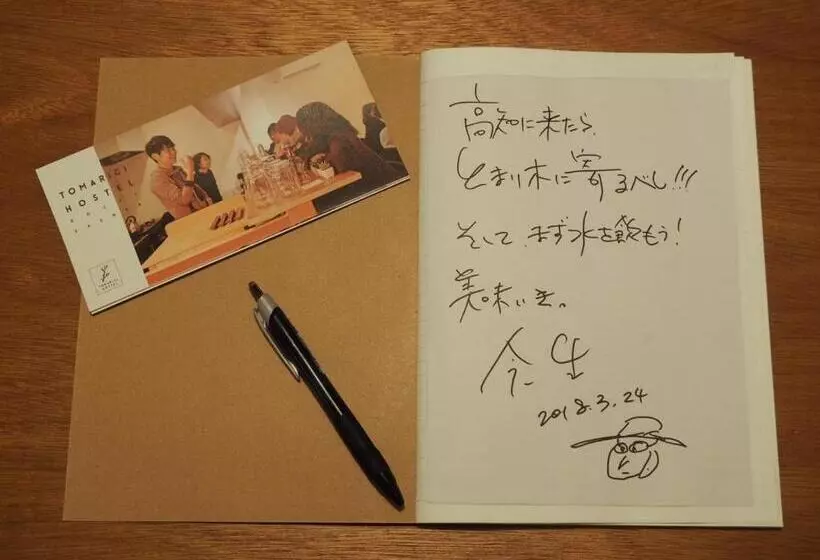 TOMARIGI
HOST
TOMARIGI
HOSTEL
高知に来たら、
とまり木に寄るべし!!!
そして、まず水を飲もう!
美味いき。
今生
2018.3.24